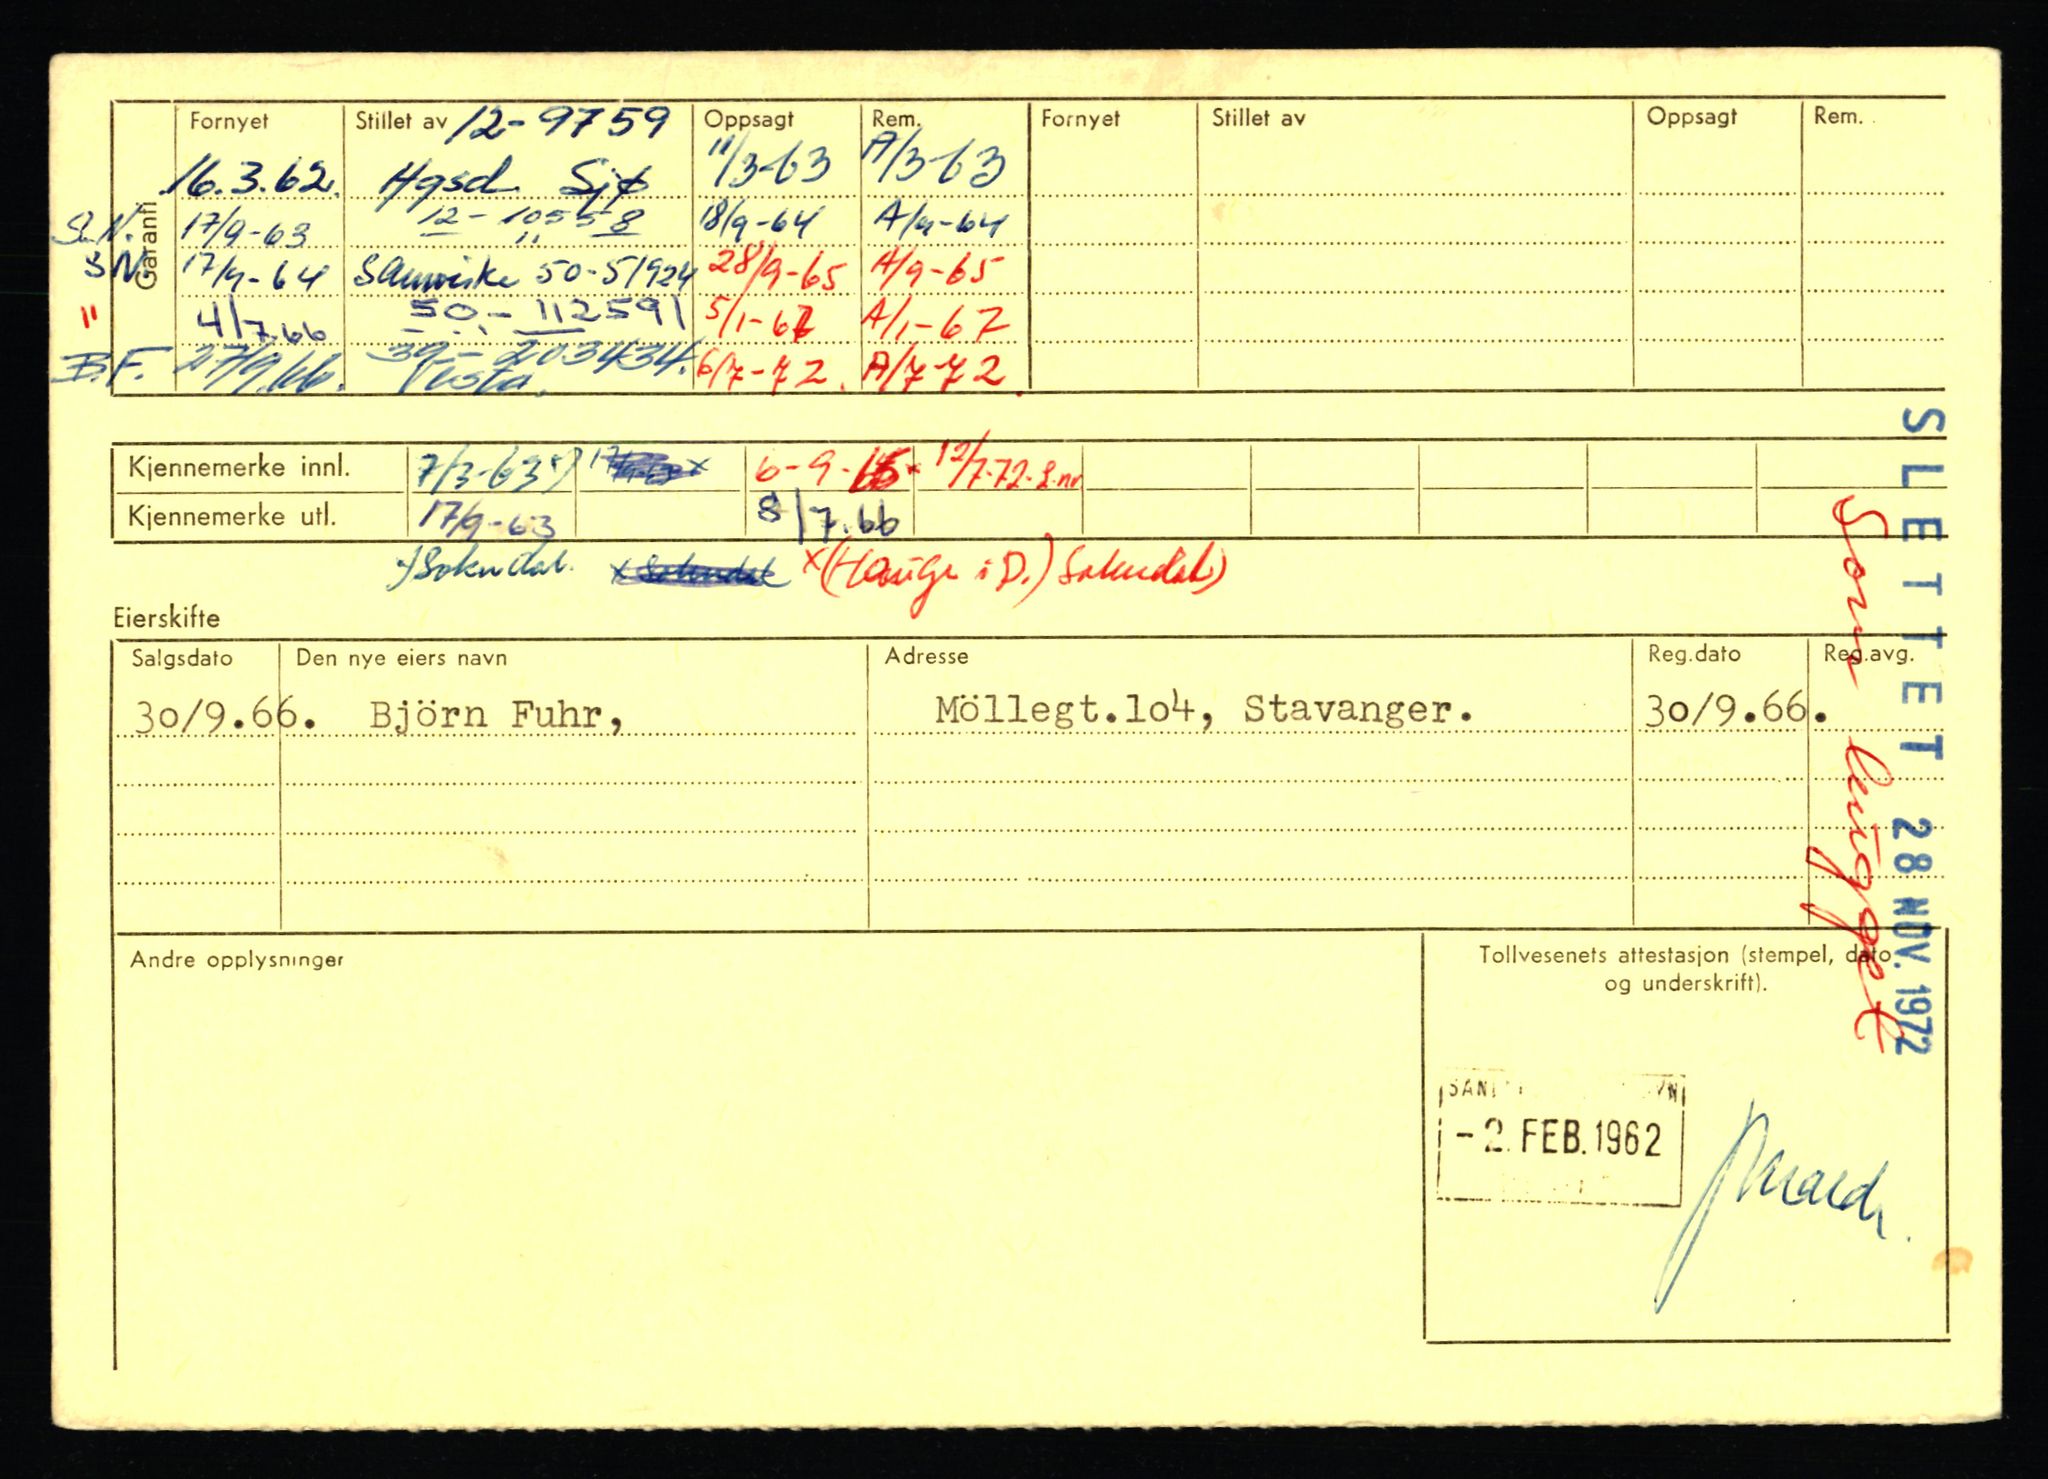 Garanti
Fornyet Stillet av 12-9759 Oppsagt Rem. Fornyet Stillet av Oppsagt Rem.
16.3.62. Hgsd. Sjø 11/3-63 A/3-63
S.N. 17/9-63 12-10558 18/9-64 A/9-64
S.N. 17/9-64 50-51924 28/9-65 A/9-65
" 4/7.66 50-112591 5/1-67 A/1-67
B.F. 27/9.66. 39-203434. Vesta. 6/7-72. A/7-72
Kjennemerke innl. 7/3-63 6-9-65 12/7-72
Kjennemerke utl. 17/9-63 8/7.66
Sokndal. x(Hauge i D.) Sokndal)
Eierskifte
Salgsdato Den nye eiers navn Adresse Reg.dato Reg.avg.
30/9.66. Björn Fuhr, Möllegt.lo4, Stavanger. 30/9.66.
Andre opplysninger
Tollvesenets attestasjon (stempel, dato
og underskrift).
-2. FEB. 1962
SLETTET 28 NOV. 1972
Som hugget